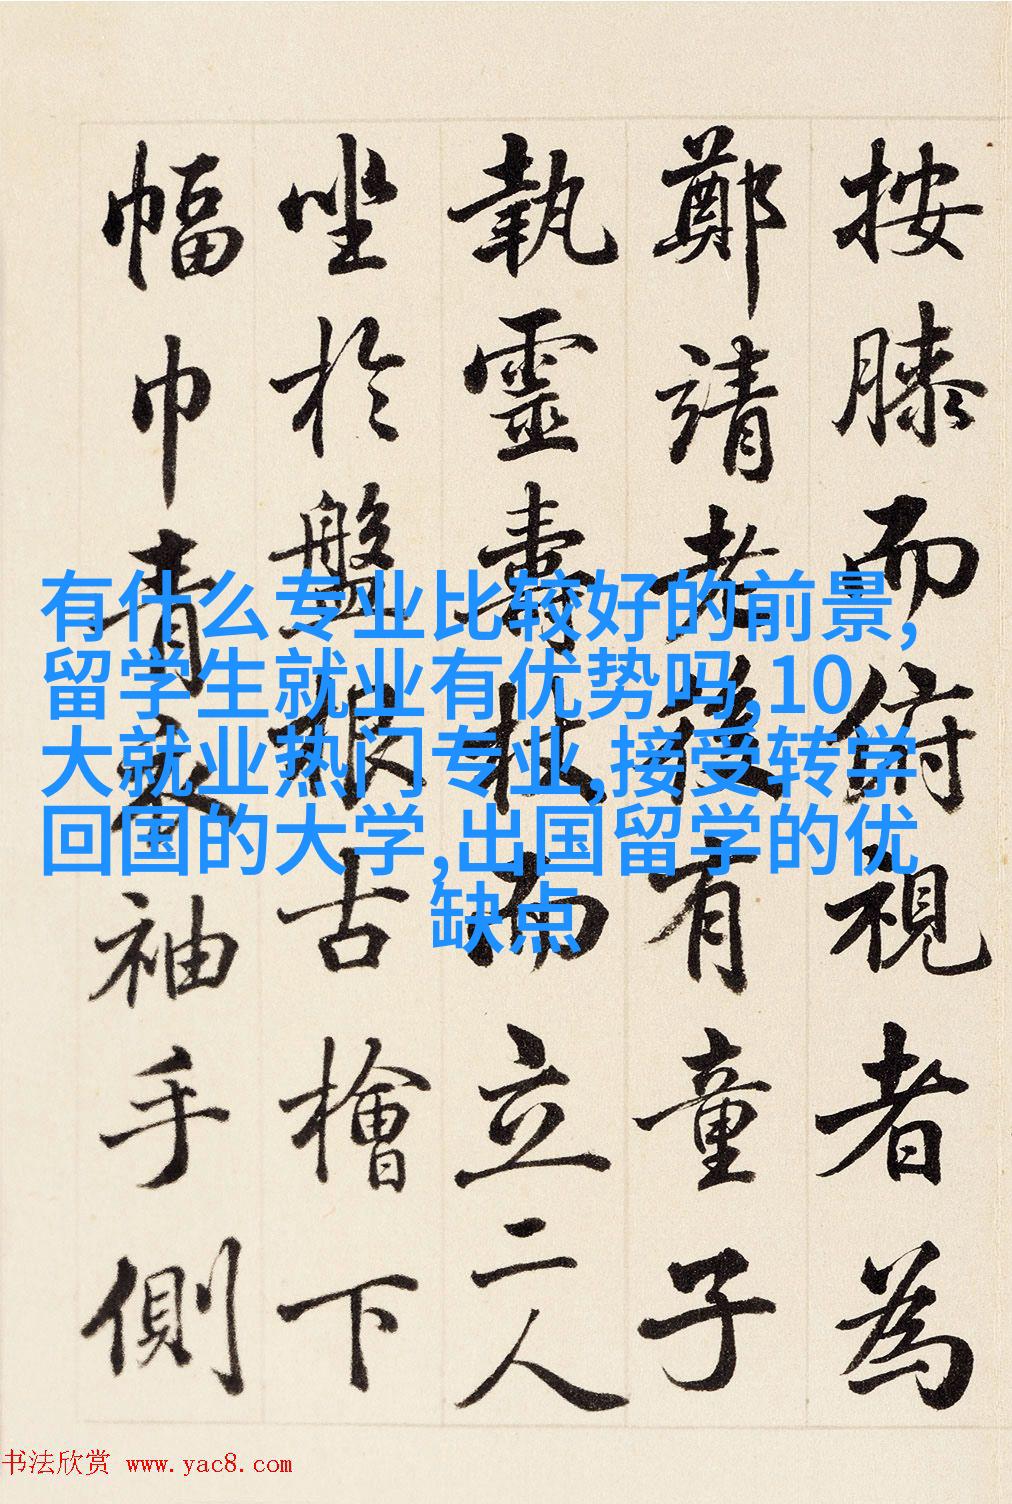 按膝而俯視者為
鄭靖老後有童子
執靈壽杖而立二人
坐於盤根古檜下
幅巾青衣袖手側
有什么专业比较好的前景,
留学生就业有优势吗,10
大就业热门专业,接受转学
回国的大学,出国留学的优
缺点
书法欣赏 www.yac8.com